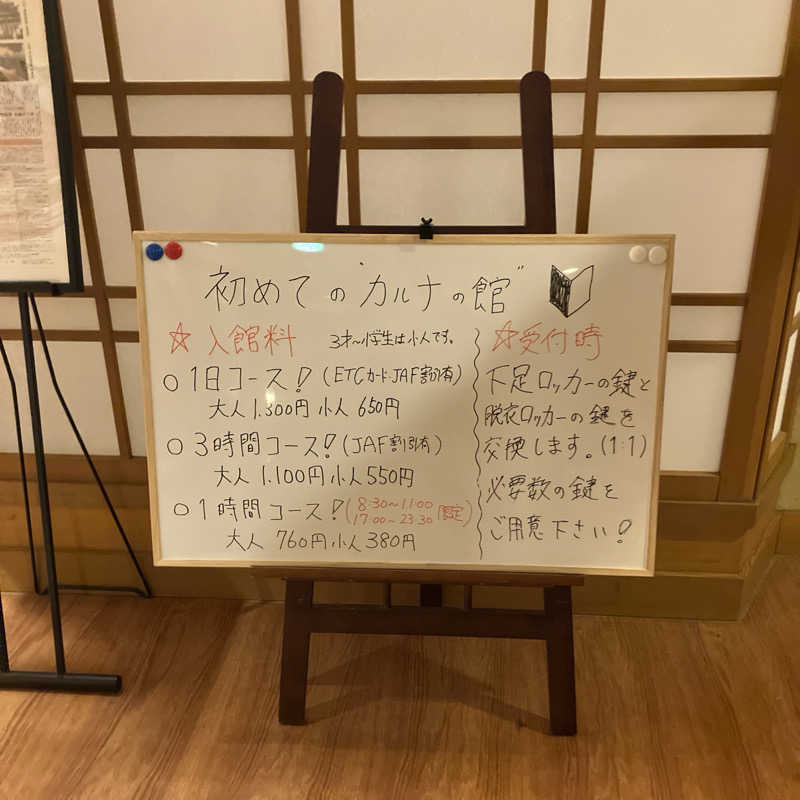 初めての"カルナの館"
☆ 入館料 3才~小学生は小人です。
○ 1日コース! (ETCカード・JAF割引有)
大人 1.300円 小人 650円
○ 3時間コース! (JAF割引有)
大人 1.100円 小人 550円
○ 1時間コース! (8:30~11:00
17:00~23:30 限定)
大人 760円 小人 380円
☆受付時
下足ロッカーの鍵と
脱衣ロッカーの鍵を
交換します。(1:1)
必要数の鍵を
ご用意下さい!